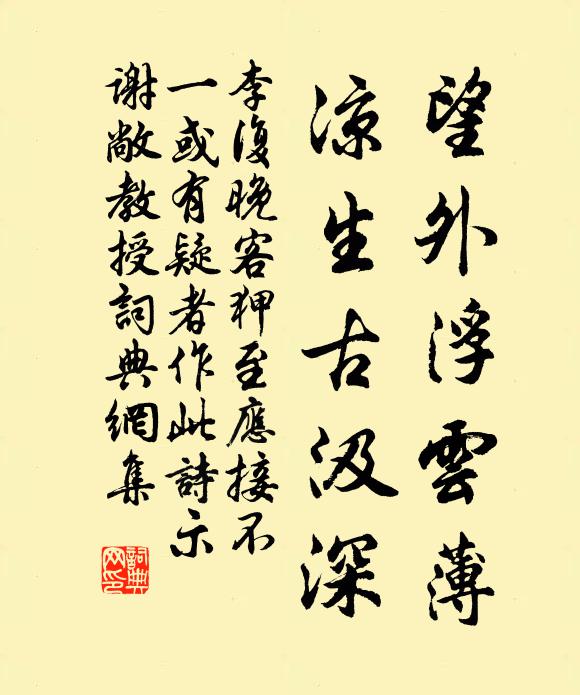 望外浮雲薄
涼生古汲深
李復晚客狎至應接不
一或有疑者作此詩示
謝敞教授詞典網集
詞典
网印